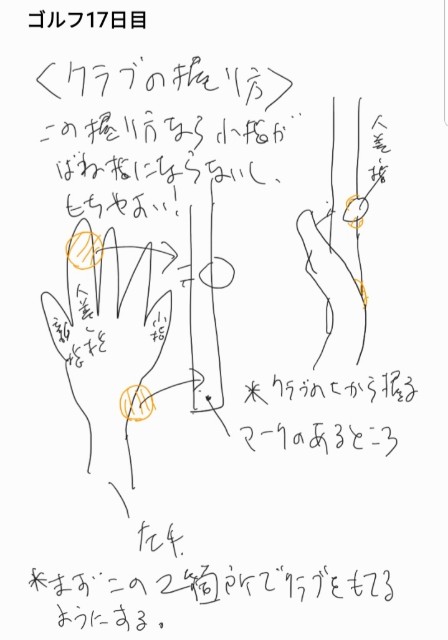 ゴルフ17日目
<クラブの握り方>
この握り方なら小指が
ばね指にならないし、
もちやすい!
人差し指
親指
人差し指
小指
*クラブの上から握る
マークのあるところ
左手
*まずこの2箇所でクラブをもてる
ようにする。